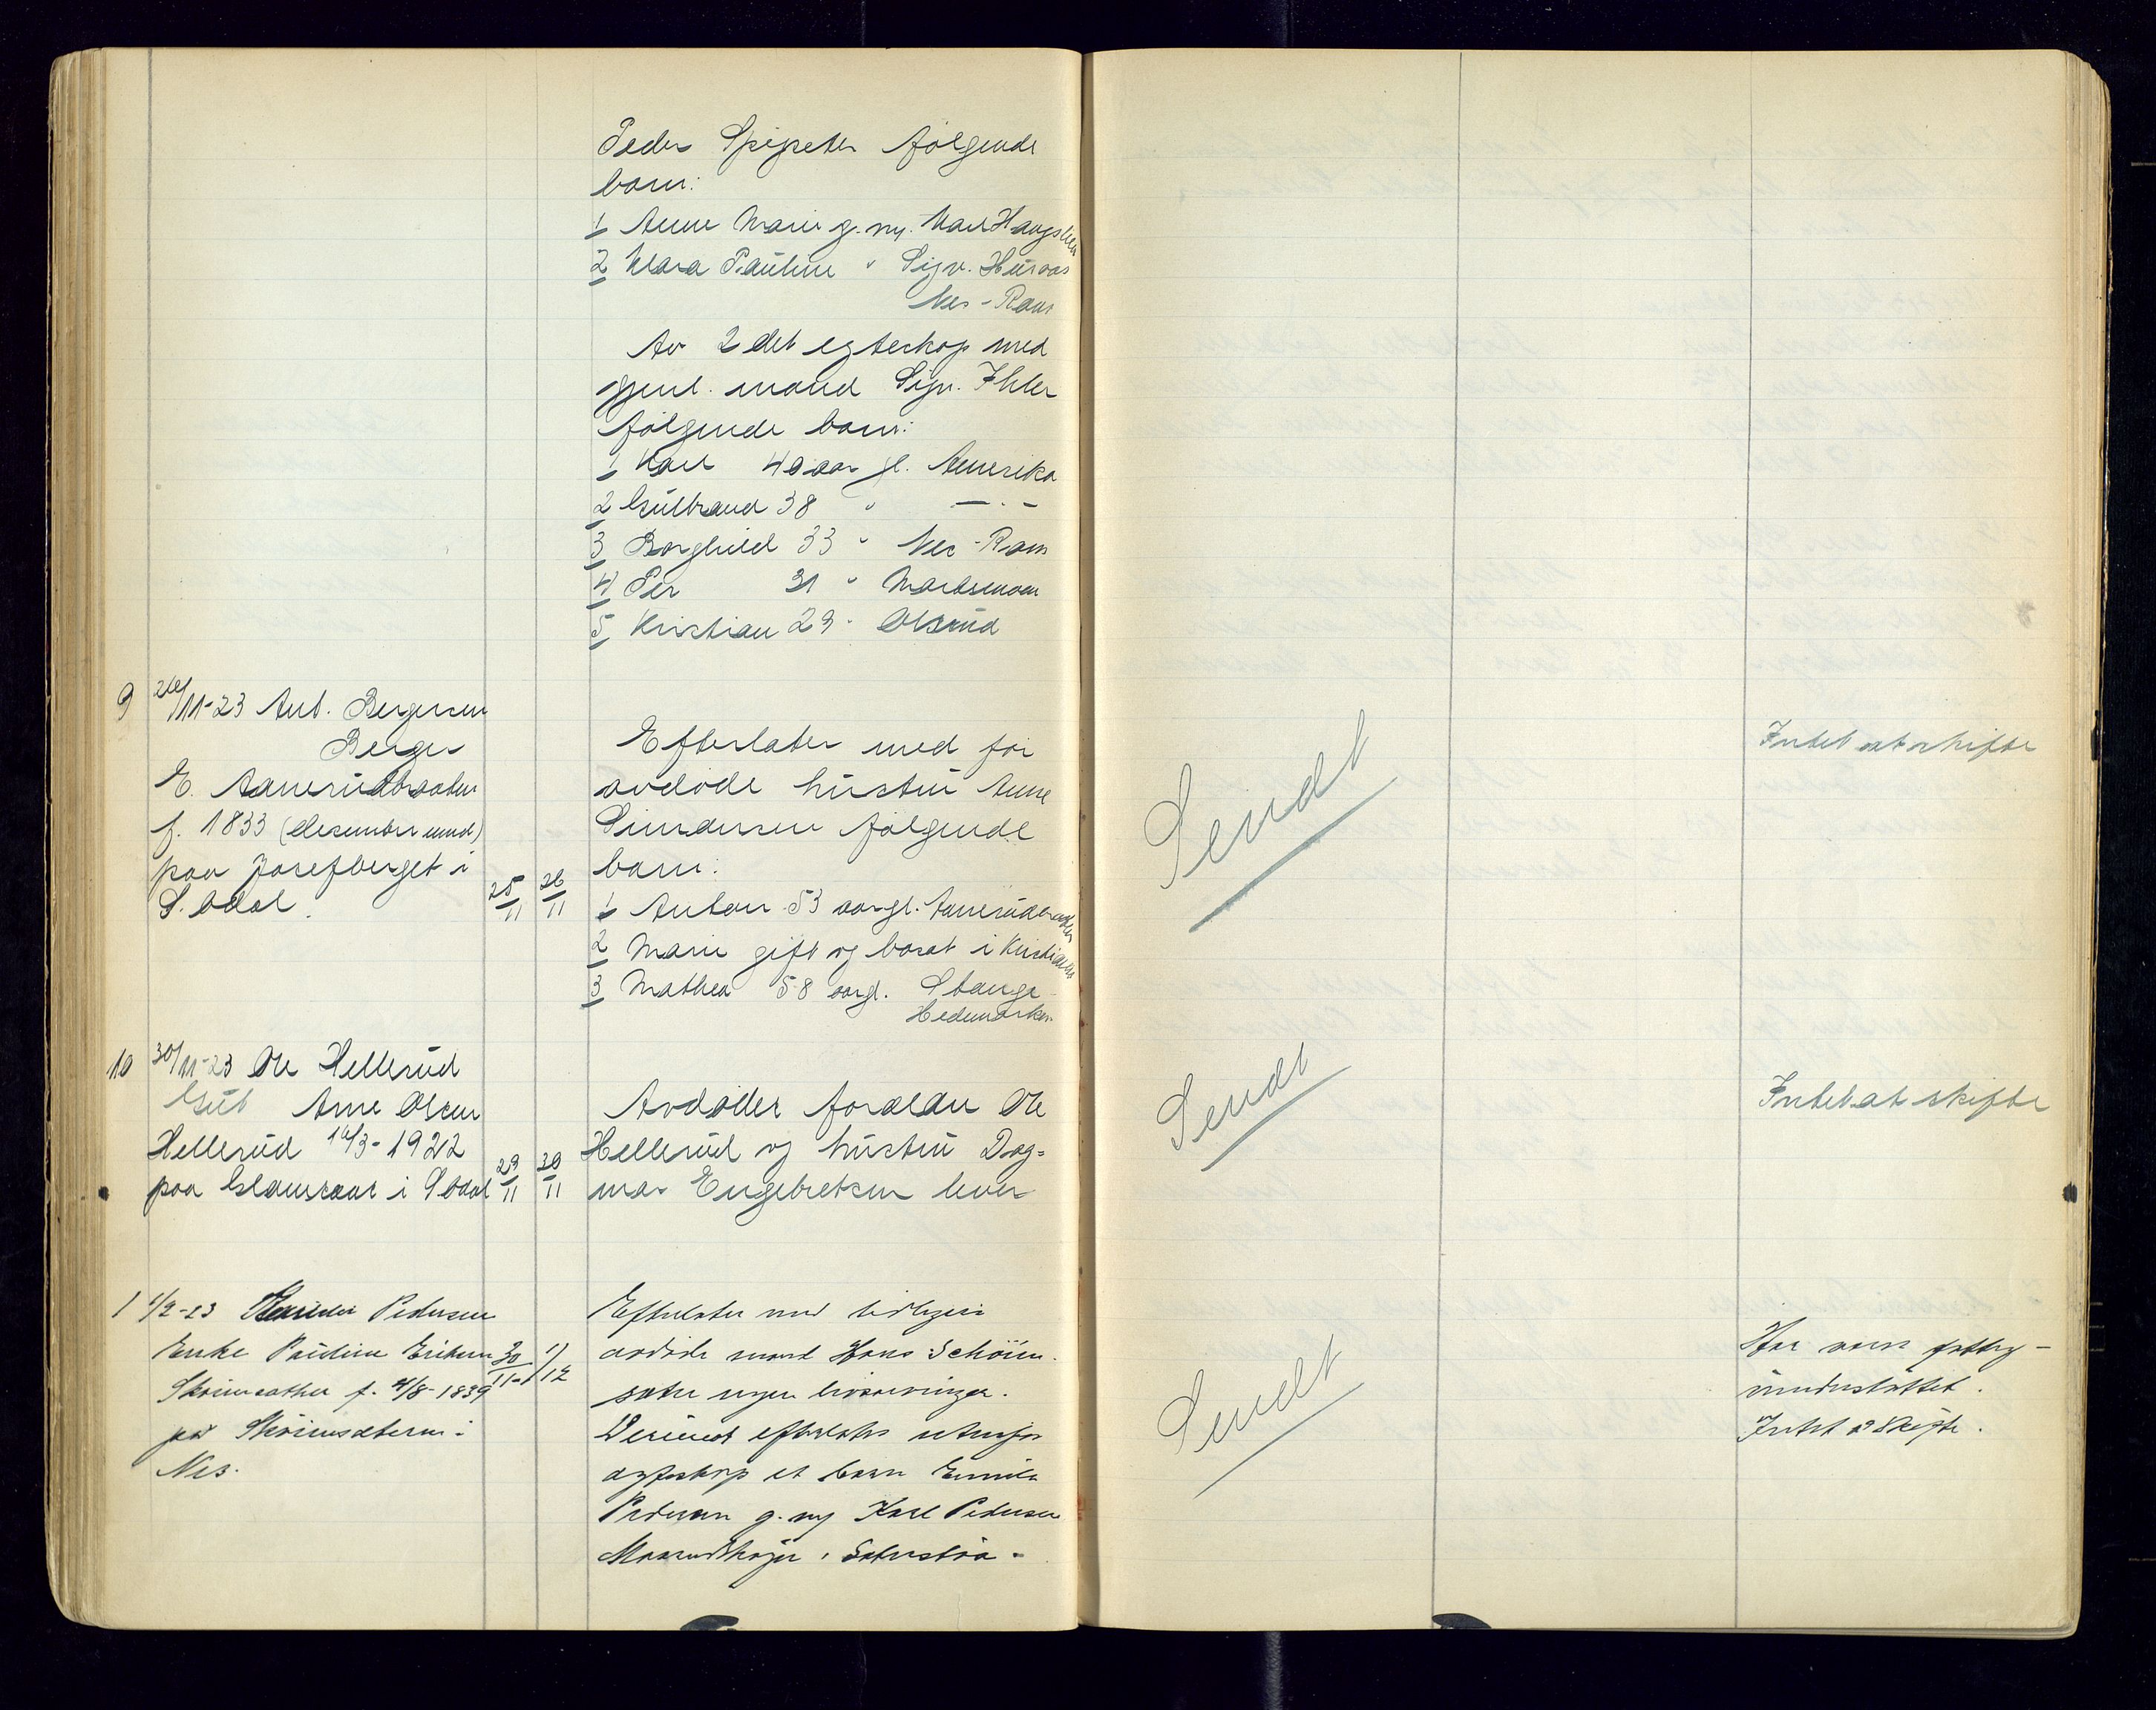 Peder Spigseter følgende
barn:
1 Anne Marie g. m. Karl Haugstun
2 Klara Pauline " Sigv. Huraas
Nes - Rom
Av 2det egteskap med
gjenl. mand Sigv. Ihler
følgende barn:
1 Karl 40 aar gl. Amerika
2 Gulbrand 38 " — . -
3 Borghild 33 " Nes - Rom
4 Per 31 " Martsmoen
5 Kristian 29 " Olsrud
9 26/11-23 Ant. Bergersen
Berger
E. Aamerudbraaten
f. 1833 (desember mnd)
paa Josefberget i
S. Odal.
25/11 26/11
Efterlater med før
avdøde hustru Anne
Simensen følgende
barn:
1 Anton 53 aar gl. Aamerudbraaten
2 Marie gift og bosat i Kristiania
3 Mathea 58 aar gl. Stange
Hedemarken
Sendt
Intet at skifte
10 30/11-23 Ole Hellerud
Gut Arne Olsen
Hellerud 16/3-1922
paa Glamraas i S Odal
29/11 30/11
Avdødes forældre Ole
Hellerud og hustru Dag=
mar Engebretsen lever
Sendt
Intet at skifte
1 1/2-23 Pedersen
Enke Pauline Eriksen
f. 4/8-1839
på i
Nes.
30/11 1/12
Efterlater med tidligere
avdøde mand Hans Schöien-
sæter ingen livsarvinger.
Derimot efterlates utenfor
egteskap et barn Emilie
Pedersen g. m. Karl Pedersen
i
Sendt
Har vært fattig-
understøttet.
Intet å skifte.